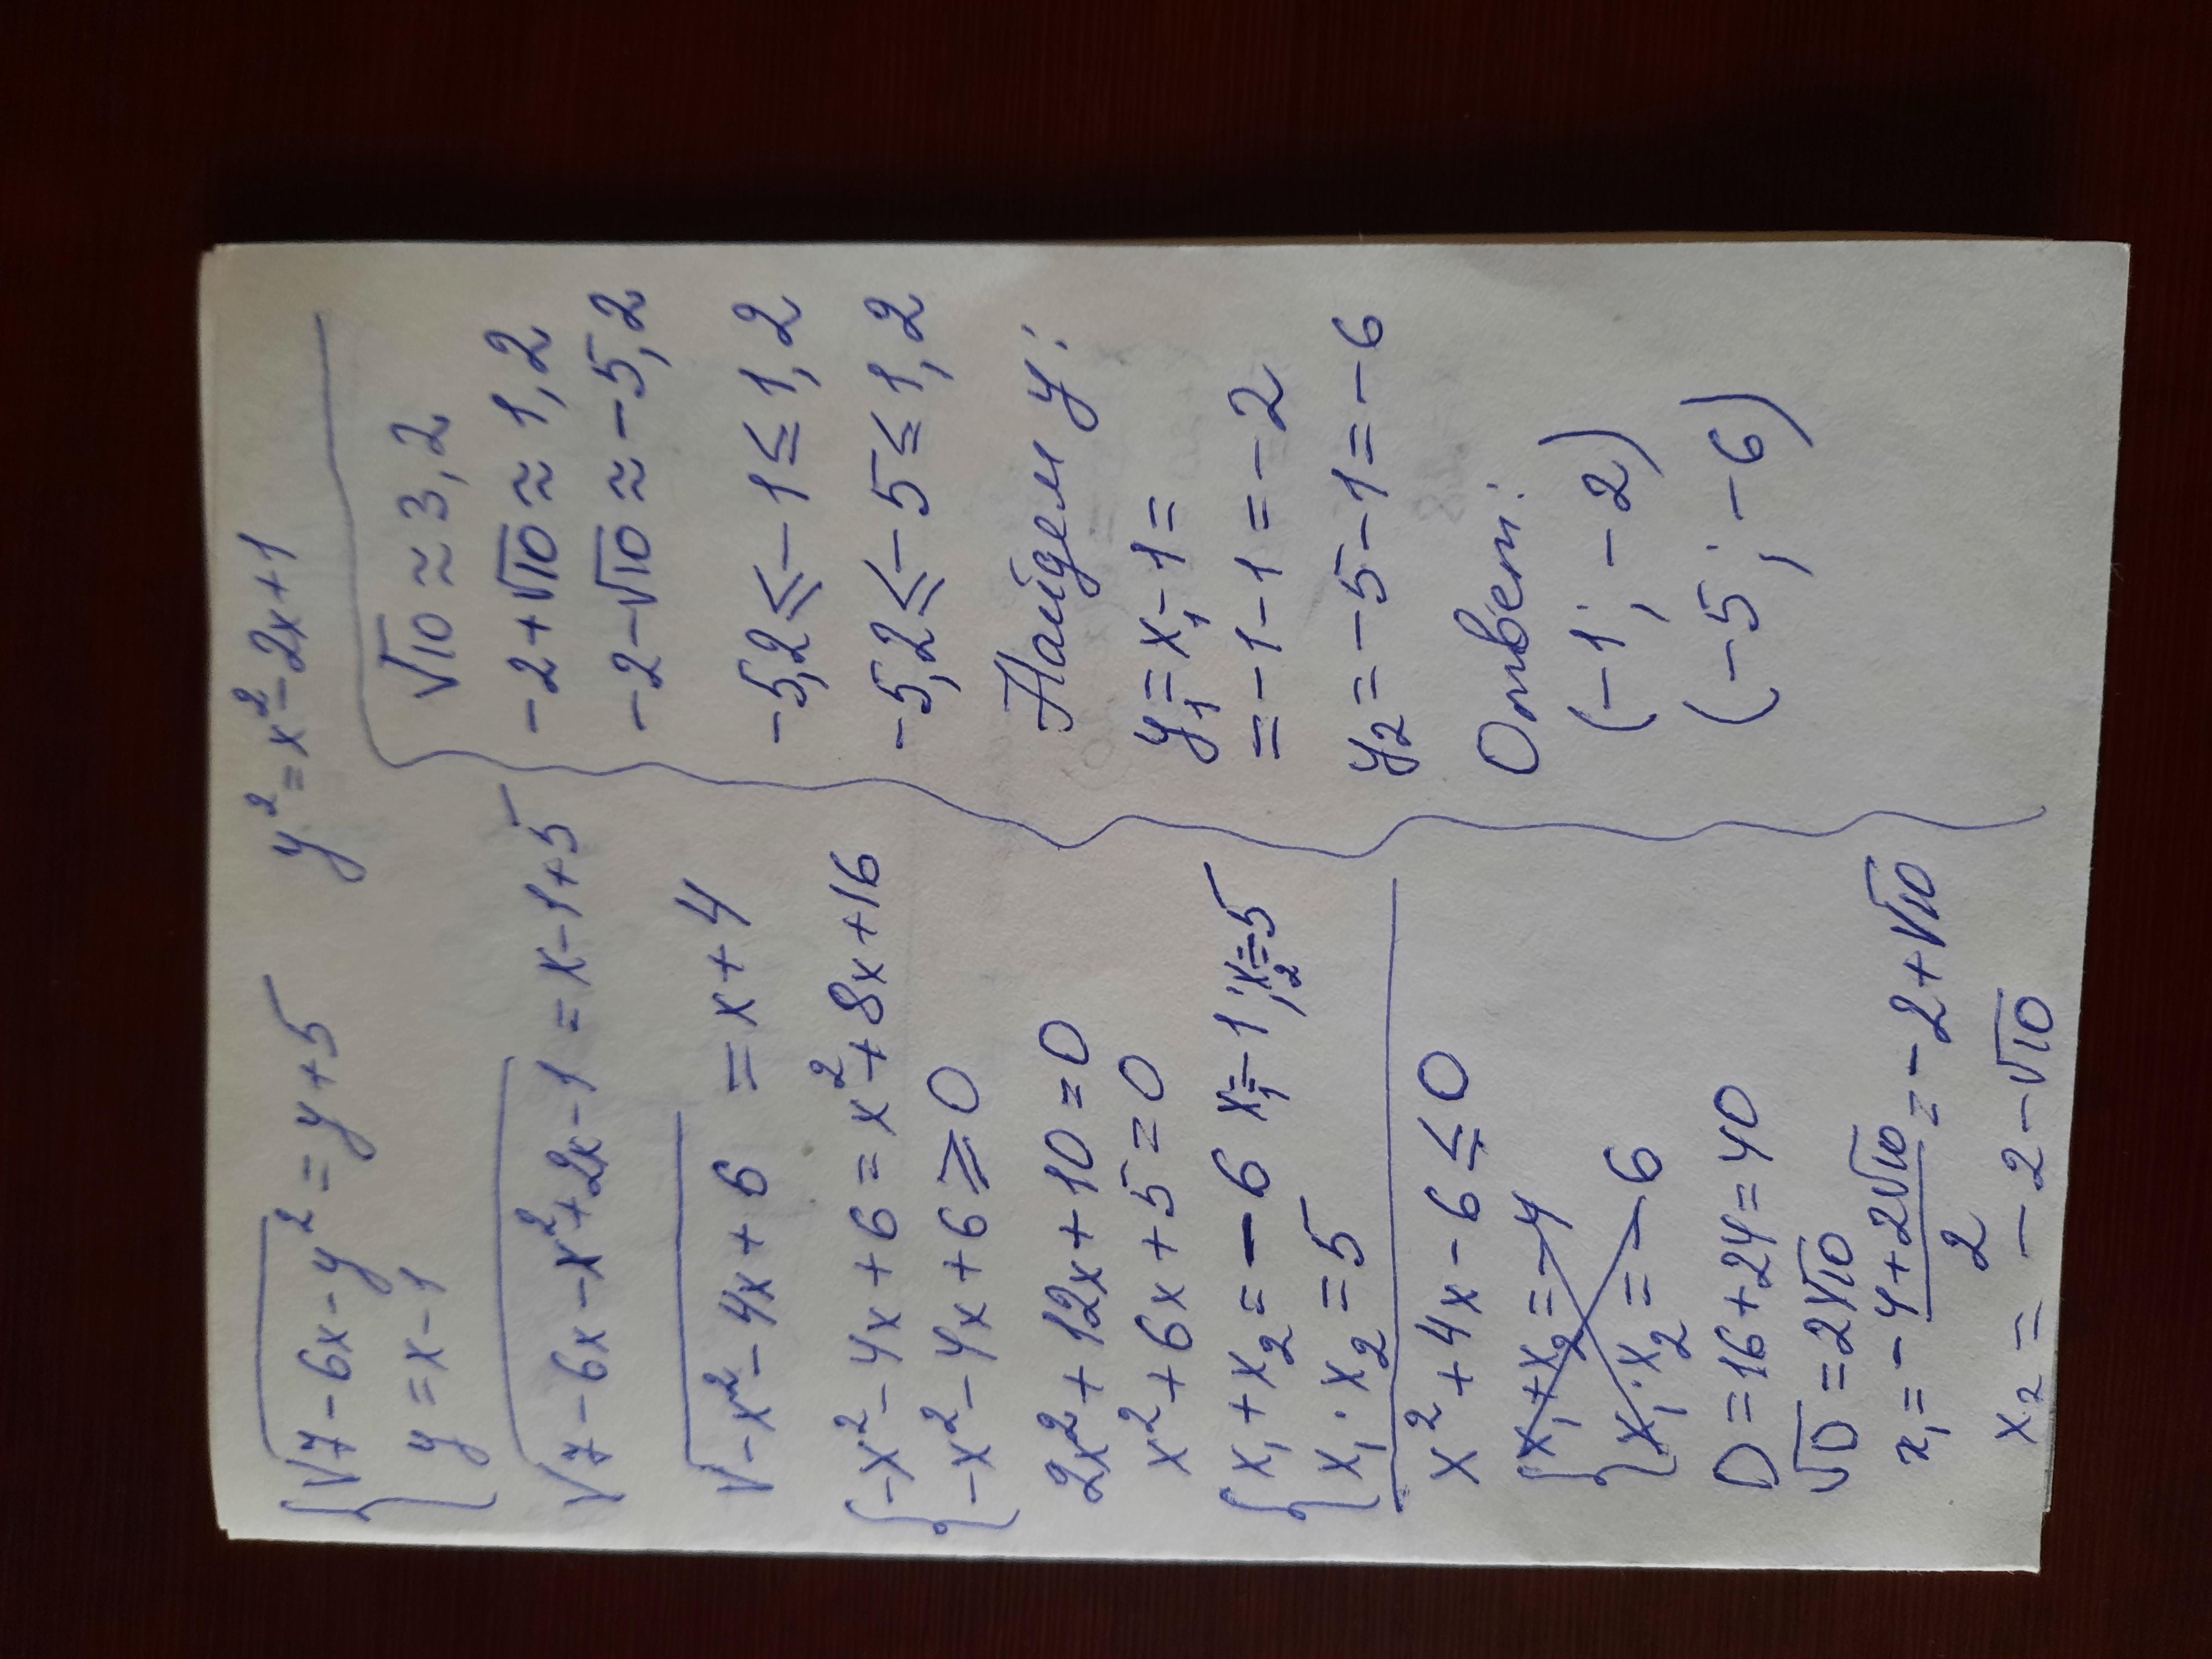 {√7-6x-y² = y+5 y² = x²-2x+1
y = x-1
√7-6x-x²+2x-1 = x-1+5
√-x²-4x+6 = x+4
{-x²-4x+6 = x²+8x+16
-x²-4x+6 ⩾ 0
2x²+12x+10=0
x²+6x+5=0
{x₁+x₂=-6 x₁=-1; x₂=5
x₁·x₂=5
x²+4x-6≤0
{x₁+x₂=-4
x₁·x₂=-6
D=16+24=40
√D=2√10
x₁=-4+2√10/2=-2+√10
x₂=-2-√10
√10≈3,2
-2+√10≈1,2
-2-√10≈-5,2
-5,2⩽-1≤1,2
-5,2⩽-5≤1,2
Найдем y:
y₁=x₁-1=
=-1-1=-2
y₂=-5-1=-6
Ответ:
(-1; -2)
(-5; -6)